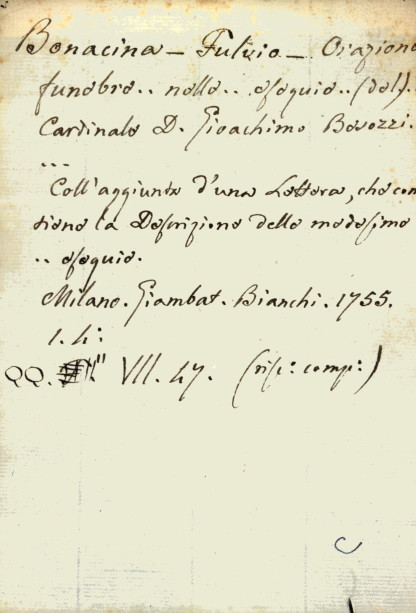 Bonacina – Fulvio – Orazione
funebre .. nelle .. esequie .. (del) .
Cardinale D. Gioachimo Besozzi.
...
Coll'aggiunta d'una Lettera, che con
tiene la Descrizione delle medesime
.. esequie.
Milano. Giambat. Bianchi. 1755.
1. 4:
QQ. VII. 47. (risc: comp:)